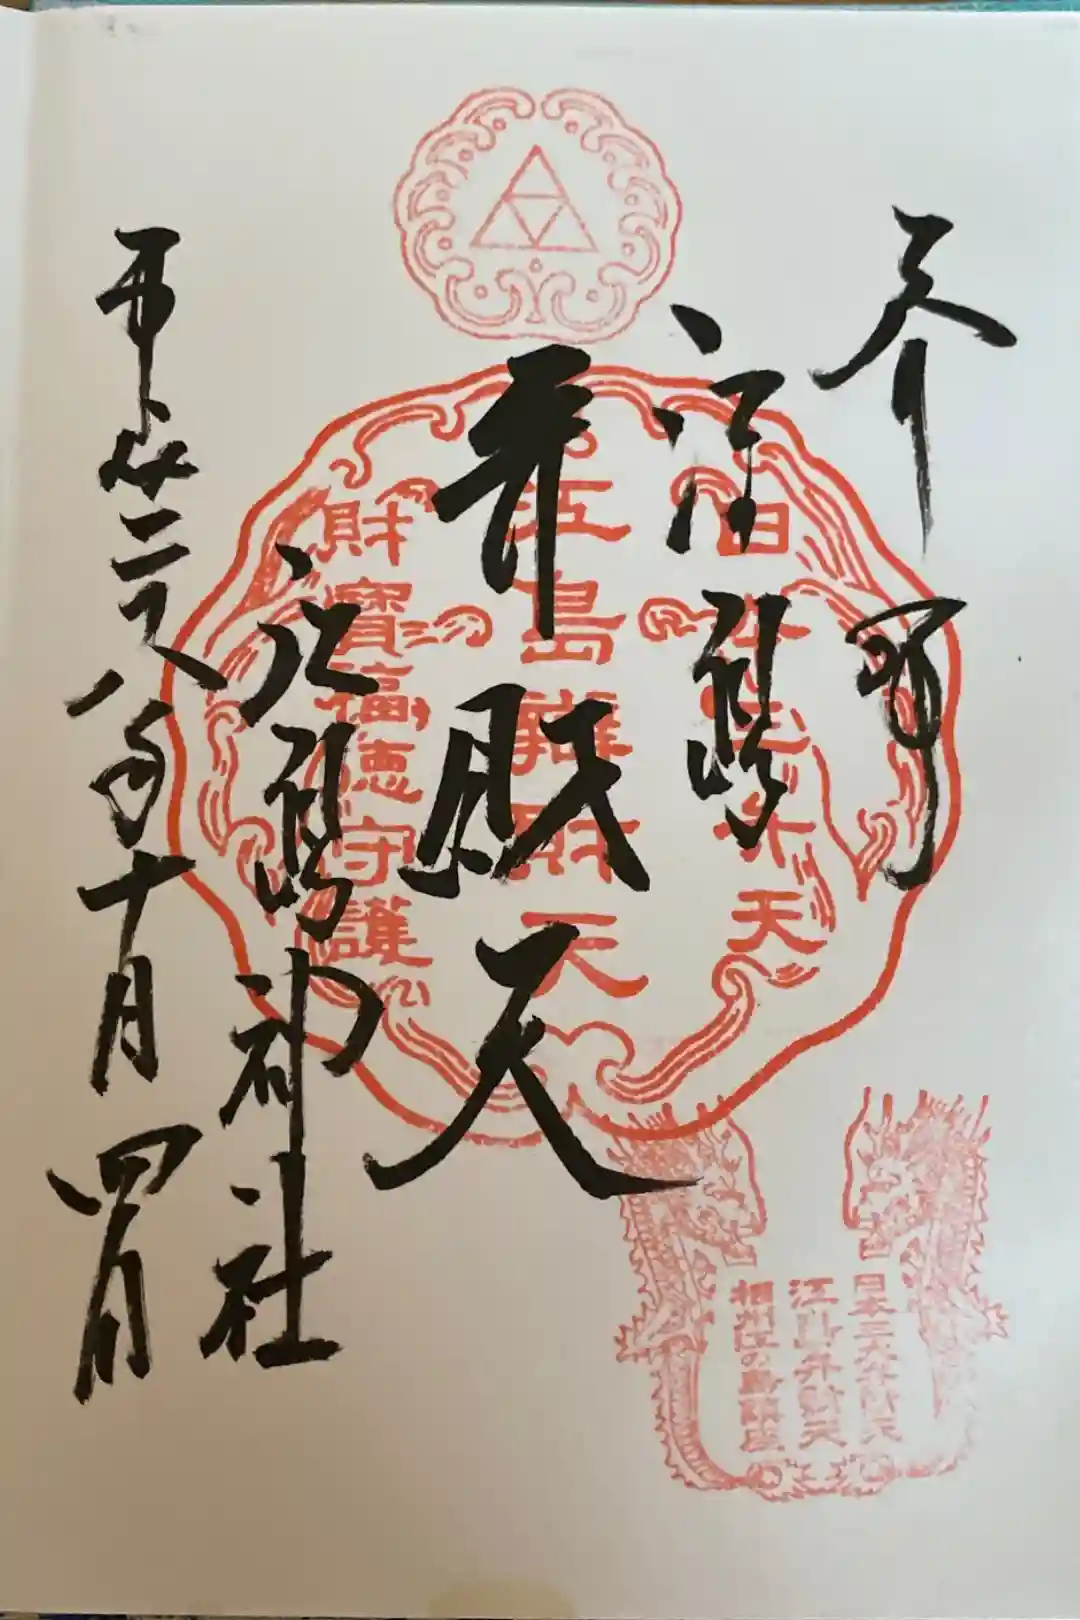 奉拝
江島
弁財天
江島神社
平成二十八年十月四日
日本三大弁天
江島辨財天
財寶福徳守護
日本三大弁財天
江島弁財天
相州江の島鎮座